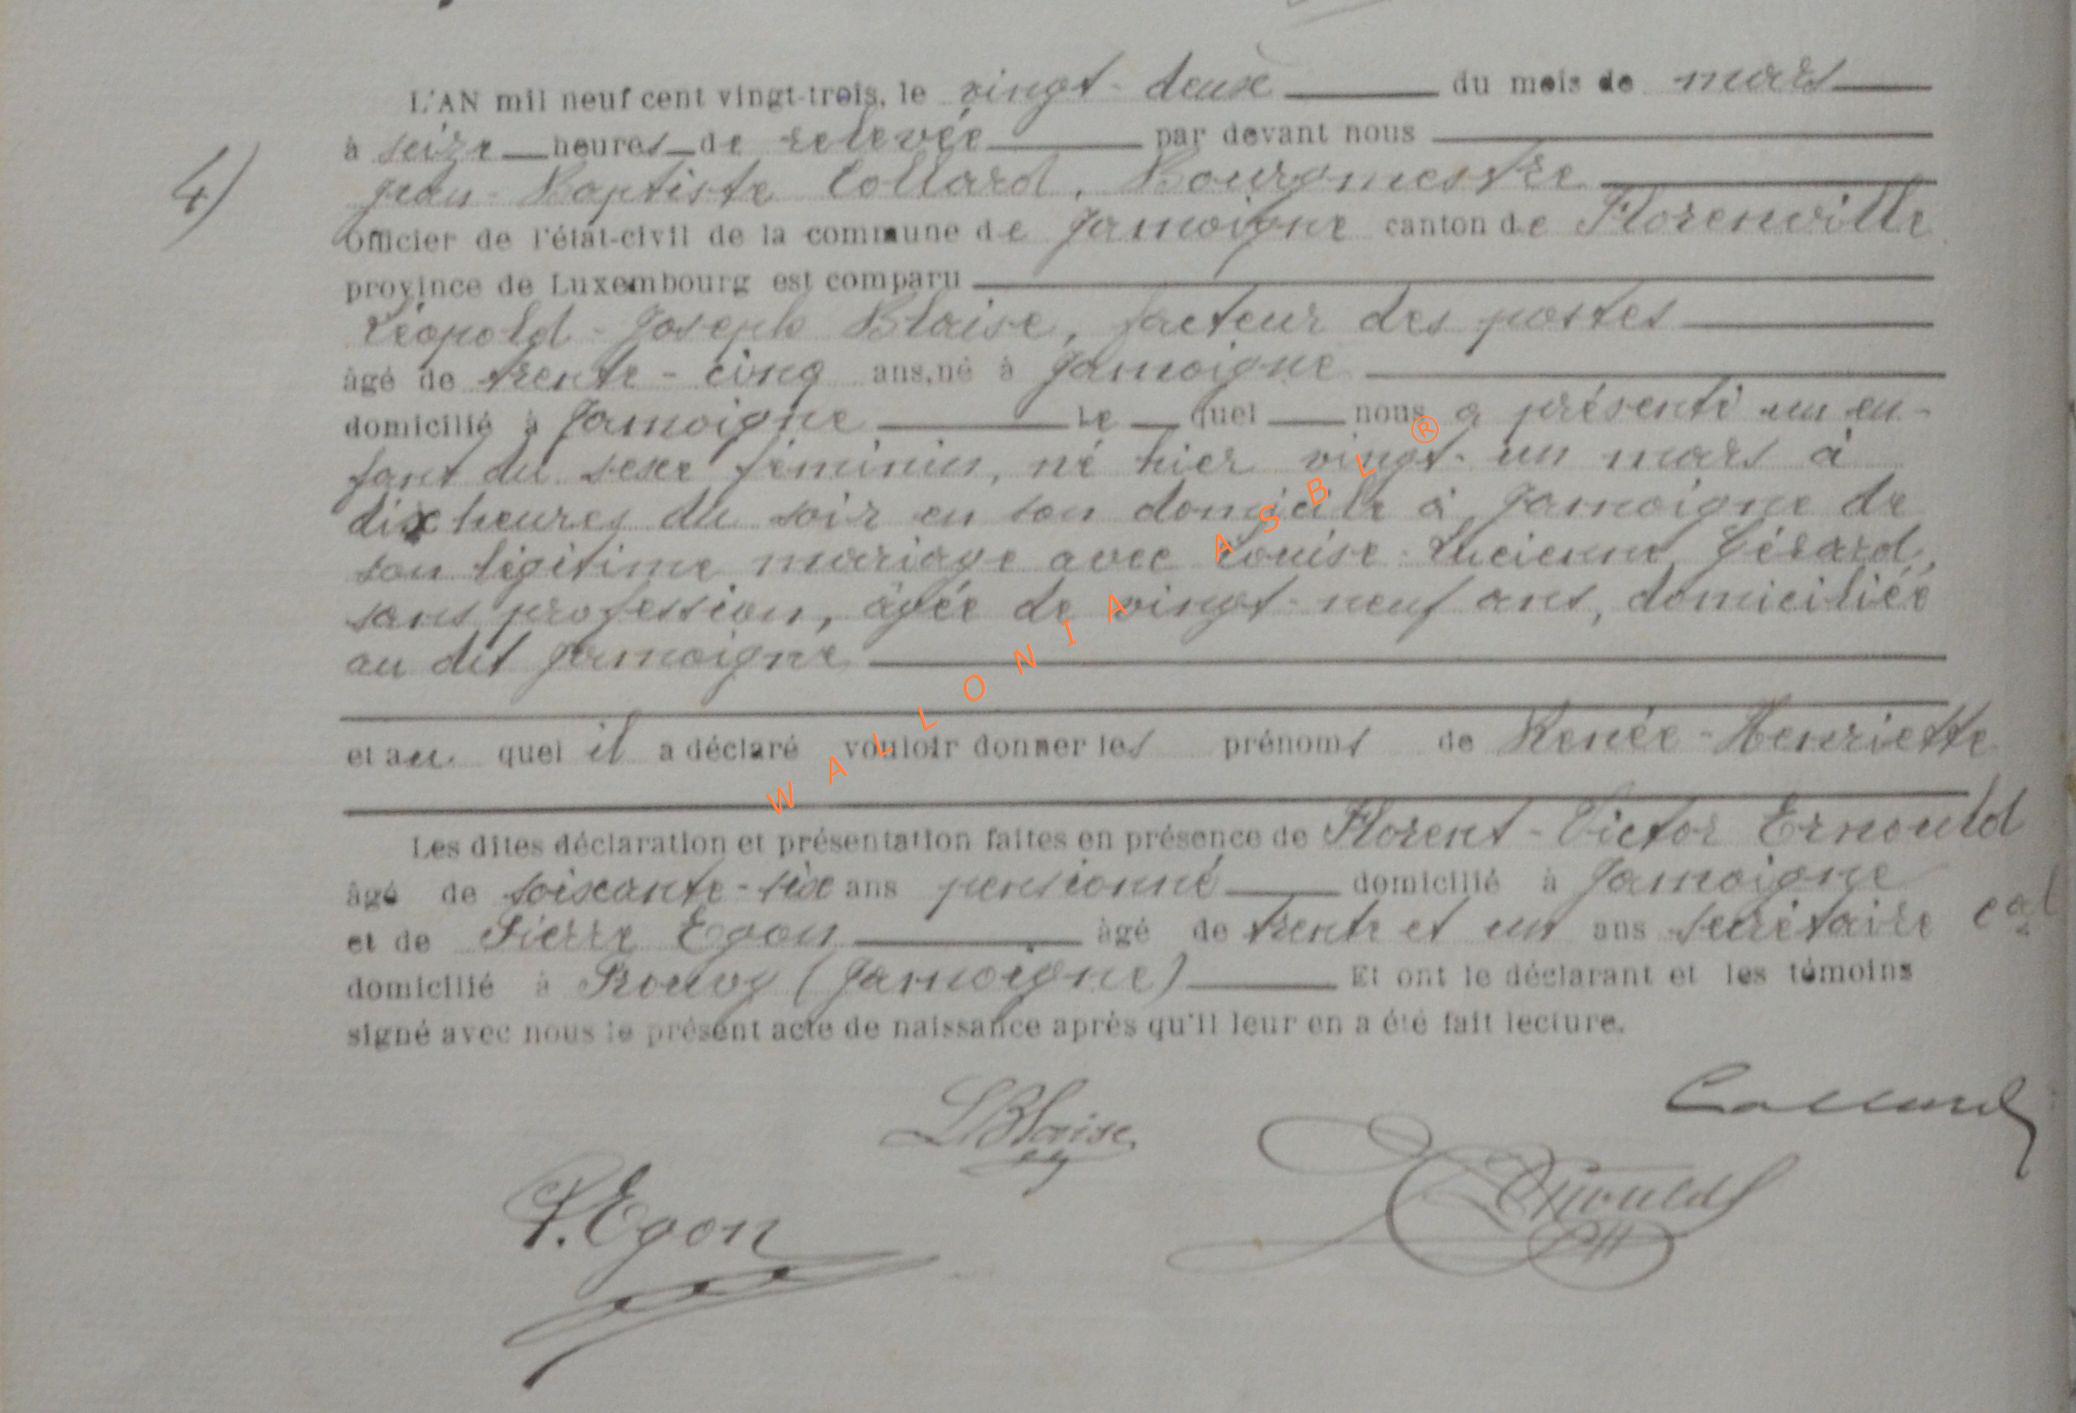 L'AN mil neuf cent vingt-trois, le vingt-deux du mois de mars
4) à seize heures de relevée par devant nous
Jean-Baptiste Collard, Bourgmestre
Officier de l'état-civil de la commune de Jamoigne canton de Florenville
province de Luxembourg est comparu
Léopold-Joseph Blaise, facteur des postes
âgé de trente-cinq ans, né à Jamoigne
domicilié à Jamoigne Le quel nous a présenté un en-
fant du sexe féminin, né hier vingt-un mars à
dix heures du soir en son domicile à Jamoigne de
son légitime mariage avec Louise-Lucienne Gérard,
sans profession, âgée de vingt-neuf ans, domiciliée
au dit Jamoigne
et au quel il a déclaré vouloir donner les prénoms de Renée-Henriette
Les dites déclaration et présentation faites en présence de Florent-Victor Ernould
âgé de soixante-six ans pensionné domicilié à Jamoigne
et de Pierre Egon âgé de trente et un ans secrétaire cal
domicilié à Prouvy (Jamoigne) Et ont le déclarant et les témoins
signé avec nous le présent acte de naissance après qu'il leur en a été fait lecture.
Collard
LBlaise
Ernould
P. Egon
WALLONIA ASBL ®